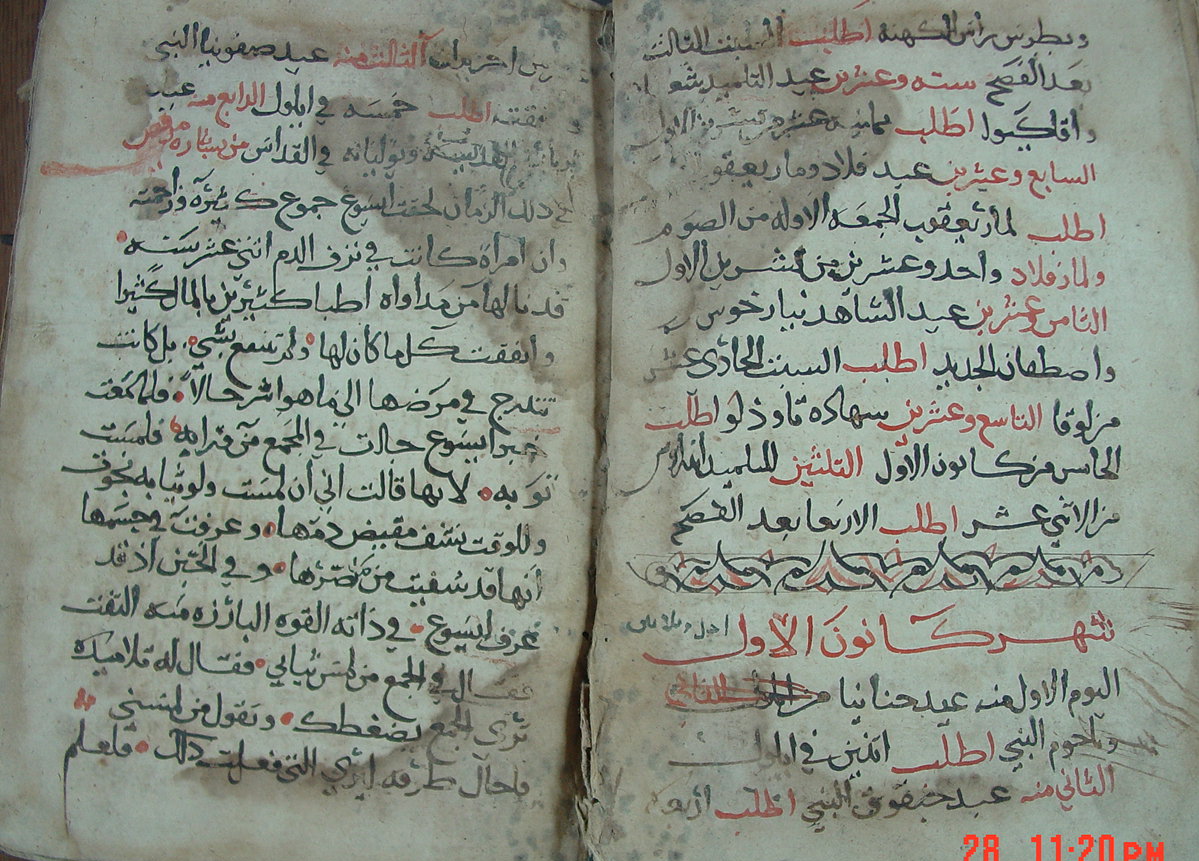 وبطرس راس الكهنه اطلب السبت الثالث
بعد الفصح سته وعشرين عيد التلميذ
اطلب ثمانيه عشر من تشرين الاول
السابع وعشرين عيد فلاد وماريعقوب
اطلب لماريعقوب الجمعه الاوله من الصوم
ولمارفلاد واحد وعشرين من تشرين الاول
الثامن وعشرين عيد الشاهد
واصطفان الجديد اطلب السبت الحادي عشر
من لوقا التاسع وعشرين اطلب
الخامس من كانون الاول الثلثين للتلميذ اندراوس
من الاثني عشر اطلب الاربعا بعد الفصح
شهر كانون الاول
اليوم الاول منه عيد حنانيا
وناحوم النبي اطلب اثنين في ايلول
الثاني منه عيد حبقوق النبي اطلب اربعه
الثالث منه عيد صفونيا النبي
اطلب خمسه في ايلول الرابع منه عيد
في القداس من بشاره مرقص
في ذلك الزمان لحقت ايسوع جموع كثيرة وزحمته
وان امراة كانت في نزف الدم اثنتي عشر سنه
قد نالها من مداواه اطبا كثيرين بالمال كثيرا
وانفقت كل ما كان لها ولم تنتفع بشي بل كانت
تتدرج في مرضها الي ما هو اشر حالا فلما سمعت
خبر ايسوع جات في الجمع من ورايه فلمست
ثوبه لانها قالت اني ان لمست ولو ثيابه نجوت
وللوقت نشف مفيض دمها وعرفت في جسمها
انها قد شفيت من ضرها وفي الحين اذ قد
عرف ايسوع في ذاته القوه البارزه منه التفت
فقال في الجمع من لمس ثيابي فقال له تلاميذه
تري الجمع يضغطك وتقول من لمسني
فاجال طرفه ليري التي فعلت ذلك فلعلم
28 11:20 PM